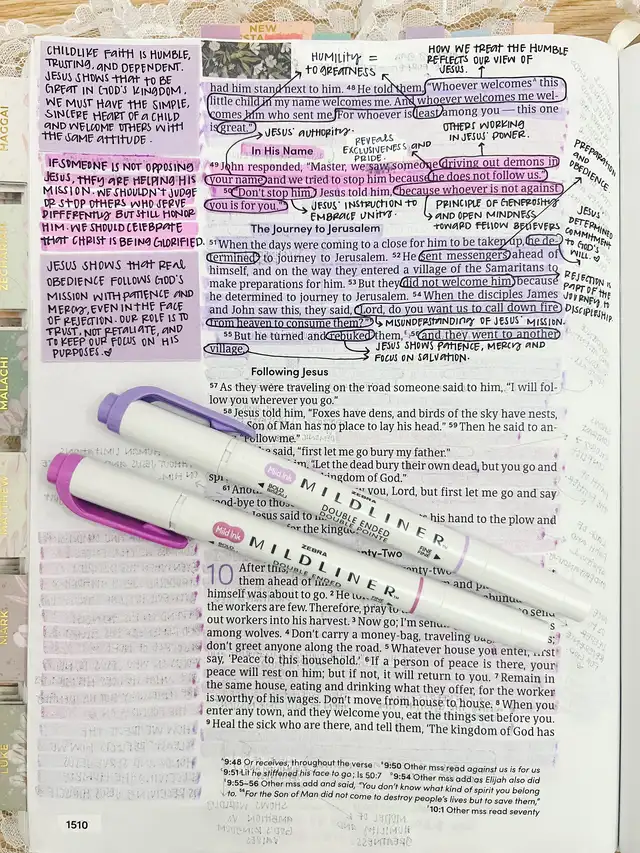 NEW
HAGGAI
ZECHARIAH
MALACHI
MATTHEW
MARK
LUKE
CHILDLIKE FAITH IS HUMBLE,
TRUSTING, AND DEPENDENT.
JESUS SHOWS THAT TO BE
GREAT IN GOD'S KINGDOM.
WE MUST HAVE THE SIMPLE,
SINCERE HEART OF A CHILD
AND WELCOME OTHERS WITH
THE SAME ATTITUDE.
IF SOMEONE IS NOT OPPOSING
JESUS, THEY ARE HELPING HIS
MISSION. WE SHOULDN'T JUDGE
OR STOP OTHERS WHO SERVE
DIFFERENTLY BUT STILL HONOR
HIM. WE SHOULD CELEBRATE
THAT CHRIST IS BEING GLORIFIED.
JESUS SHOWS THAT REAL
OBEDIENCE FOLLOWS GOD'S
MISSION WITH PATIENCE AND
MERCY, EVEN IN THE FACE
OF REJECTION. OUR ROLE IS TO
TRUST, NOT RETALIATE, AND
TO KEEP OUR FOCUS ON HIS
PURPOSES.
HUMILITY =
TO GREATNESS
HOW WE TREAT THE HUMBLE
REFLECTS OUR VIEW OF
JESUS.
had him stand next to him. 48 He told them, "Whoever welcomes^ this
little child in my name welcomes me. And whoever welcomes me wel-
comes him who sent me. For whoever is least among you — this one
is great."
JESUS' AUTHORITY.
REVEALS
EXCLUSIVENESS AND
PRIDE.
OTHERS WORKING
IN JESUS' POWER.
In His Name
49 John responded, "Master, we saw someone driving out demons in
your name, and we tried to stop him because he does not follow us."
50 "Don't stop him," Jesus told him, "because whoever is not against
you is for you."
JESUS' INSTRUCTION TO
EMBRACE UNITY.
PRINCIPLE OF GENEROSITY
AND OPEN MINDNESS
TOWARD FELLOW BELIEVERS
PREPARATION
AND
OBEDIENCE
JESUS'
DETERMINED
COMMITMENT
TO GOD'S
WILL.
REJECTION IS
PART OF THE
JOURNEY TO
DISCIPLESHIP.
The Journey to Jerusalem
51 When the days were coming to a close for him to be taken up, he de-
termined to journey to Jerusalem. 52 He sent messengers ahead of
himself, and on the way they entered a village of the Samaritans to
make preparations for him. 53 But they did not welcome him, because
he determined to journey to Jerusalem. 54 When the disciples James
and John saw this, they said, "Lord, do you want us to call down fire
from heaven to consume them?"
MISUNDERSTANDING OF JESUS' MISSION.
55 But he turned and rebuked them, 56 and they went to another
village.
JESUS SHOWS PATIENCE, MERCY AND
FOCUS ON SALVATION.
Following Jesus
57 As they were traveling on the road someone said to him, "I will fol-
low you wherever you go."
58 Jesus told him, "Foxes have dens, and birds of the sky have nests,
Son of Man has no place to lay his head." 59 Then he said to an-
"Follow me."
said, "first let me go bury my father."
"Let the dead bury their own dead, but you go and
kingdom of God."
61 you, Lord, but first let me go and say
Jesus said his hand to the plow and
for the
Mild Ink
BOLD
ZEBRA
MILDLINER
DOUBLE ENDED
DOUBLE POINTE
FINE
Mild Ink
BOLD
ZEBRA
MILDLINER
DOUBLE ENDED
FINE
10 After this,
them ahead of him
himself was about to go. 2 He
the workers are few. Therefore, pray to send
out workers into his harvest. 3 Now go; I'm send
among wolves. 4 Don't carry a money-bag, traveling
don't greet anyone along the road. 5 Whatever house you enter, first
say, 'Peace to this household.' 6 If a person of peace is there, your
peace will rest on him; but if not, it will return to you. 7 Remain in
the same house, eating and drinking what they offer, for the worker
is worthy of his wages. Don't move from house to house. 8 When you
enter any town, and they welcome you, eat the things set before you.
9 Heal the sick who are there, and tell them, 'The kingdom of God has
9:48 Or receives, throughout the verse 9:50 Other mss read against us is for us
9:51 Lit he stiffened his face to go; Is 50:7 9:54 Other mss add as Elijah also did
9:55–56 Other mss add and said, "You don't know what kind of spirit you belong
to. 56 For the Son of Man did not come to destroy people's lives but to save them,"
10:1 Other mss read seventy
1510